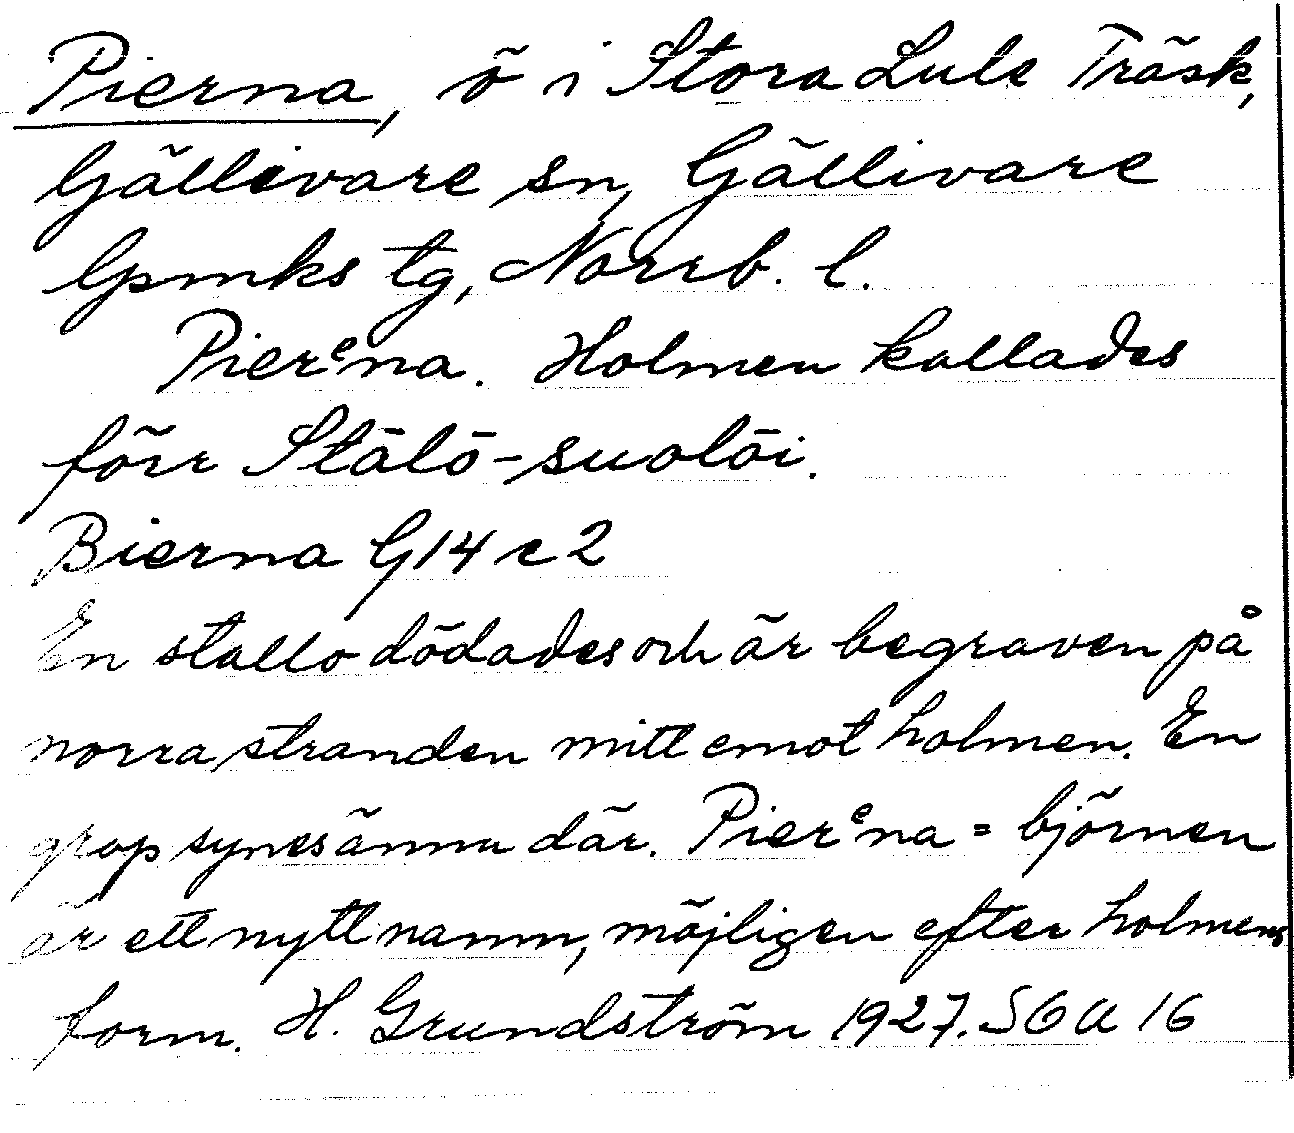 Pierna, ö i Stora Lule Träsk,
Gällivare sn, Gällivare
lpmks tg, Norrb. l.
Pierᵉna. Holmen kallades
förr Stālō-suolōi.
Bierna G14 c2
En stallo dödades och är begraven på
norra stranden mitt emot holmen. En
grop synes ännu där. Pierᵉna = björnen
är ett nytt namn, möjligen efter holmens
form. H. Grundström 1927. SGA 16